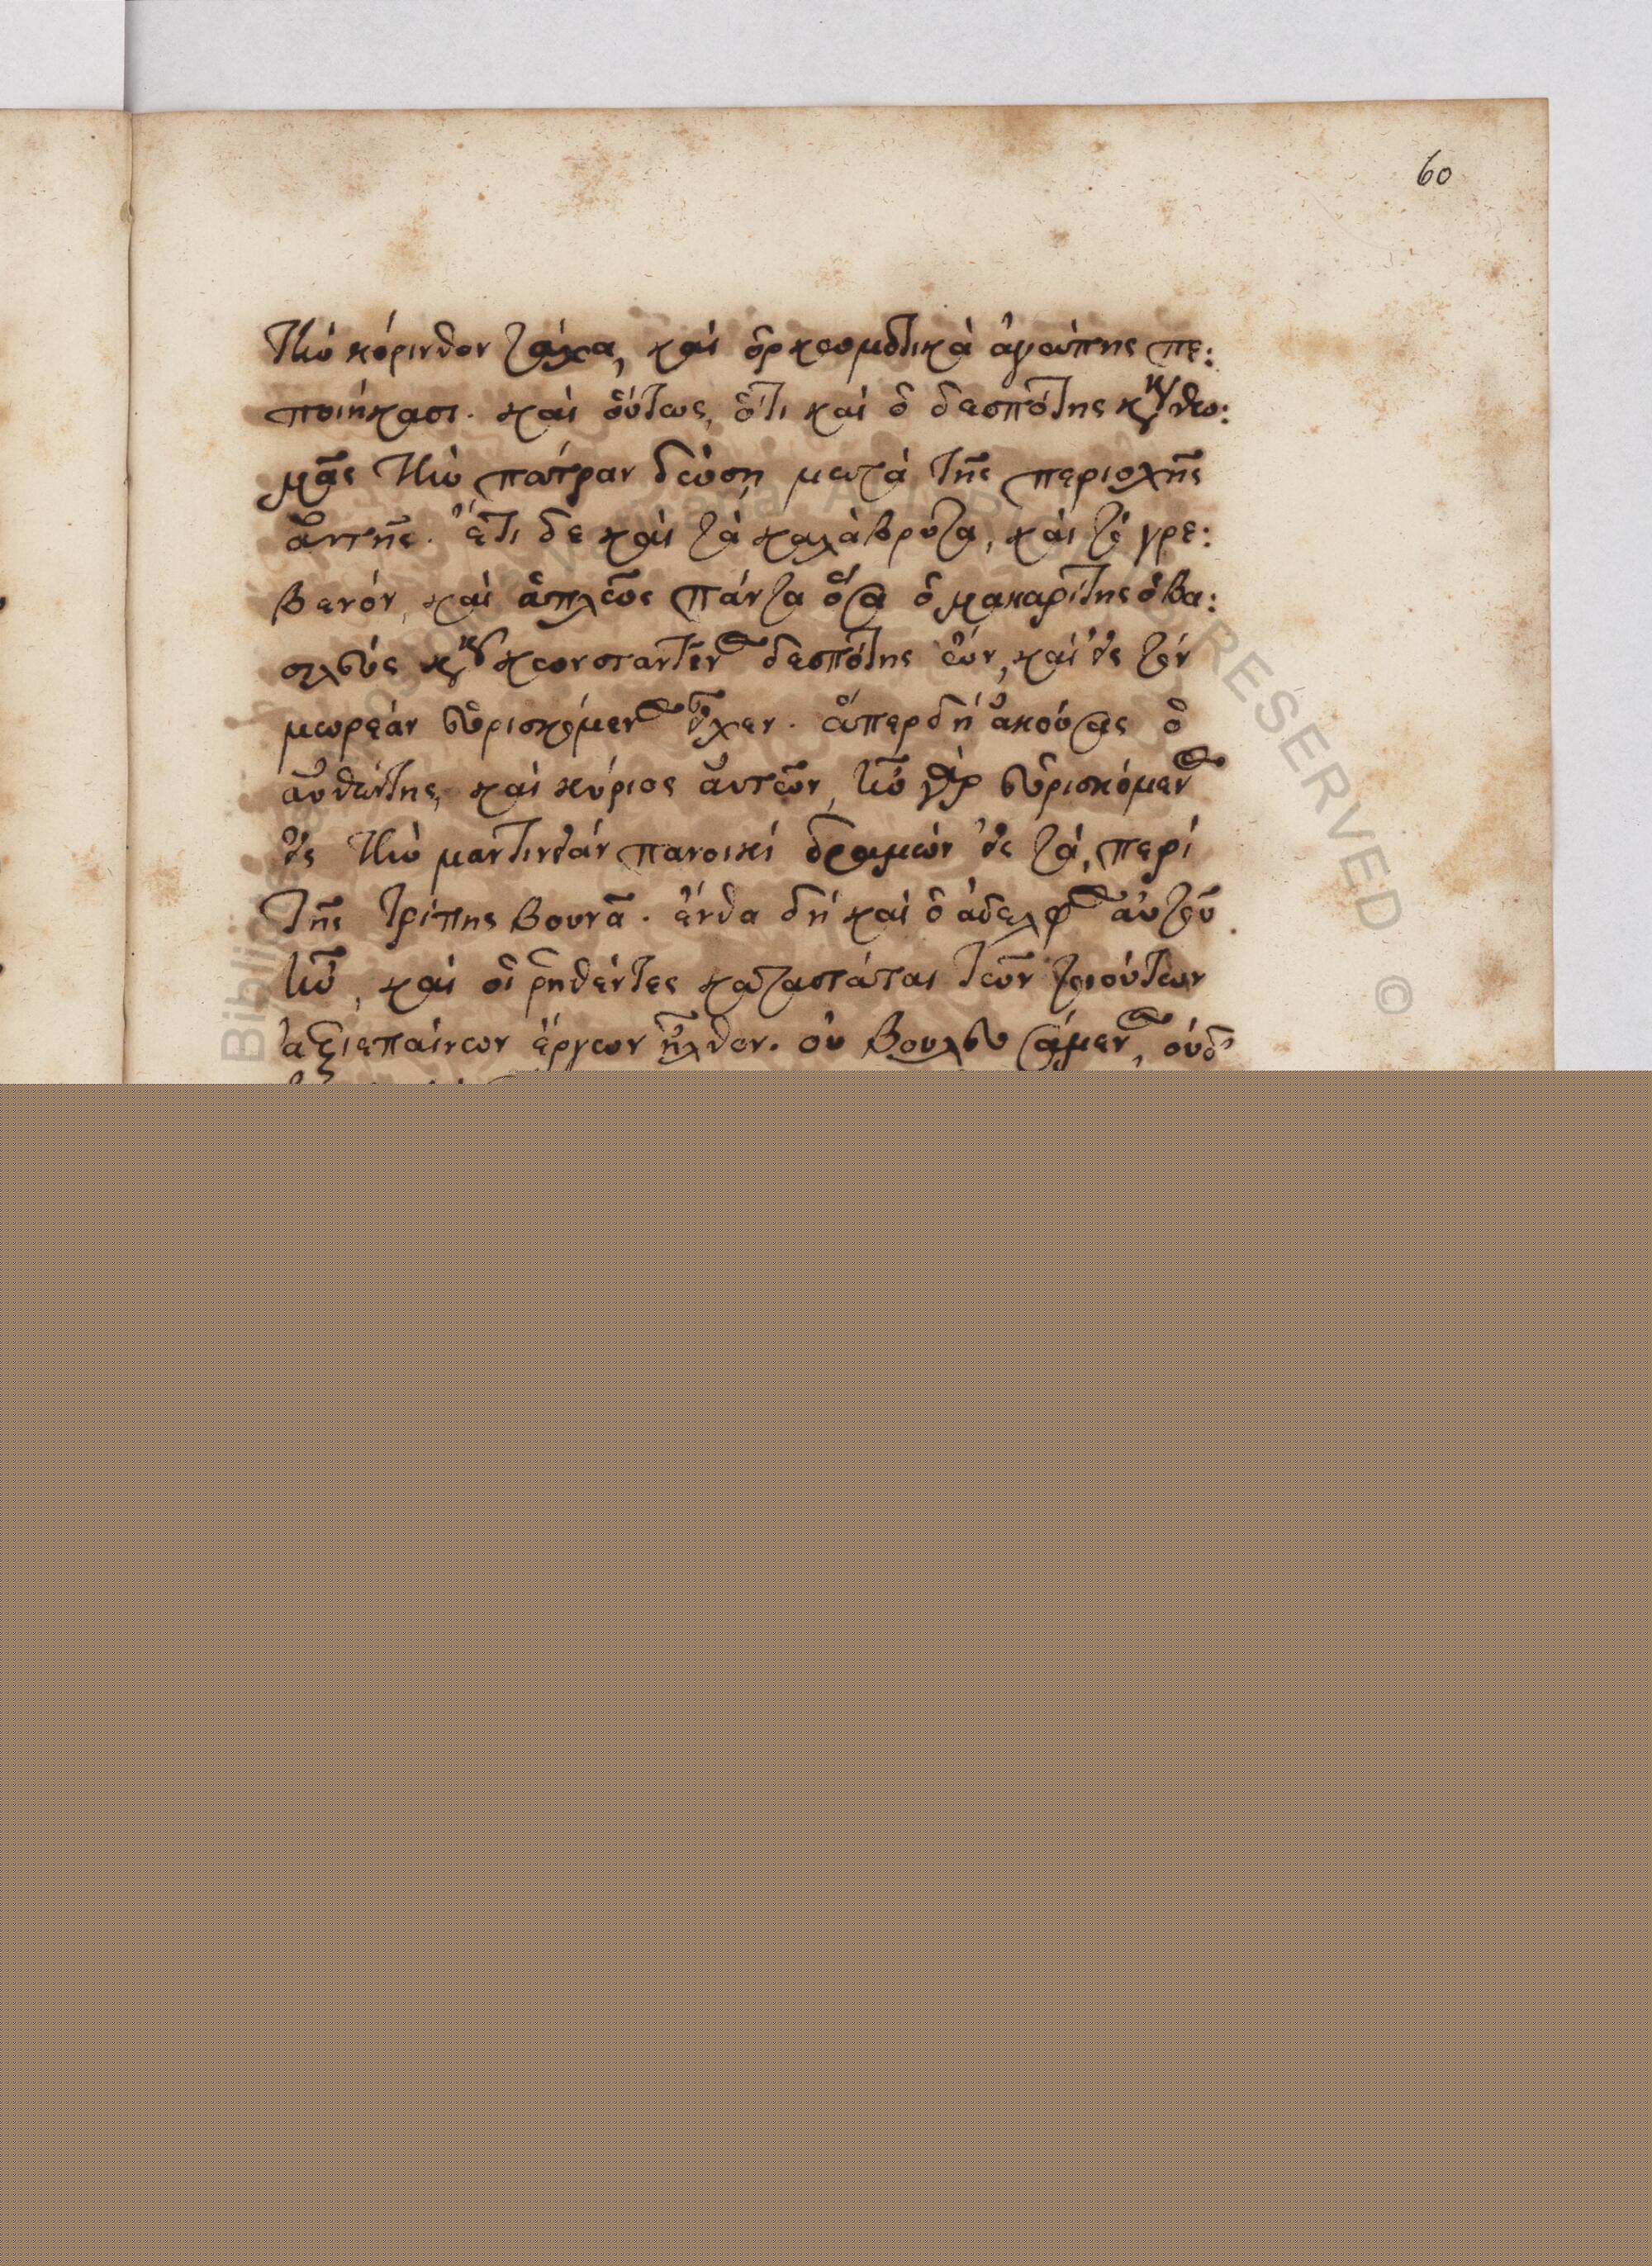 60
τὴν κόρινθον τάχα, καὶ ὁρκωματικὰ ἀγάπης πε:
ποιήκασι. καὶ οὕτως, ὅτι καὶ ὁ δεσπότης κὺρ θω:
μᾶς τὴν πάτραν δώση μετὰ τῆς περιοχῆς
αὐτῆς. ἔτι δε καὶ τὰ καλάβρυτα, καὶ τὸ γρε:
βενόν, καὶ ἁπλῶς πάντα ὅσα ὁ μακαρίτης ὁ βα:
σιλεύς κὺρ κωνσταντῖνος δεσπότης ὤν, καὶ εἰς τὸν
μωρέαν εὑρισκόμενος εἶχεν. ἅπερ δή ἀκούσας ὁ
αὐθέντης, καὶ κύριος αὐτῶν, ἦν γὰρ εὑρισκόμενος
εἰς τὴν μαντινείαν πανοικί δραμών εἰς τὰ, περί
τῆς τρίπης βουνᾶ. ἔνθα δή καὶ ὁ ἀδελφὸς αὐτοῦ
ἦν, καὶ οἱ ῥηθέντες καταστάται τῶν τοιούτων
ἀξιεπαίνων ἔργων ἦλθον. οὐ βουλευσάμενος, οὐδ'
Biblio
RESERVED ©